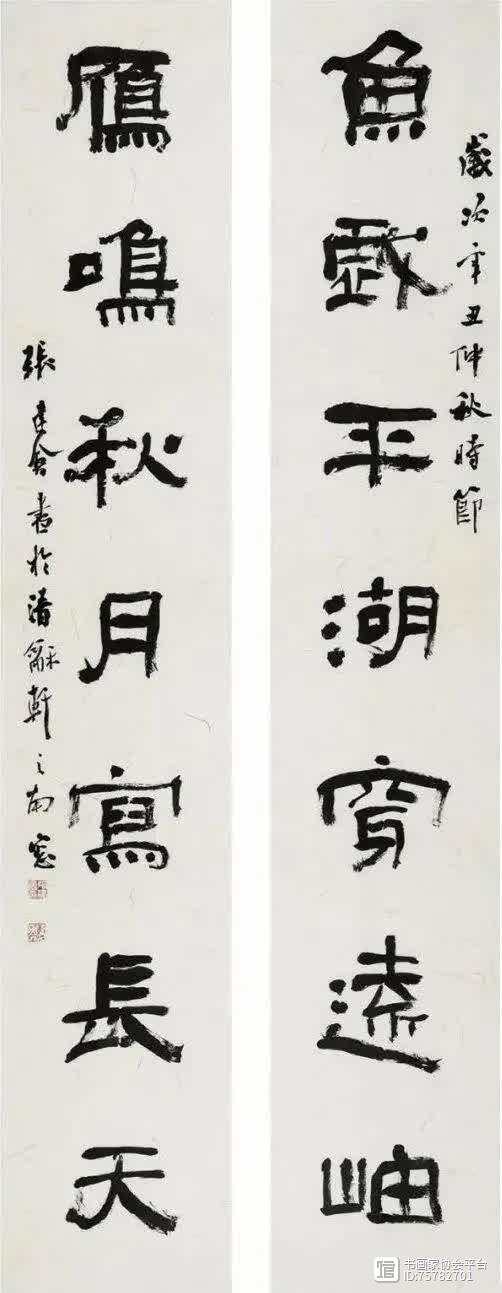 歲次辛丑仲秋時節
魚戲平湖穿遠岫
鴈鳴秋月寫長天
張建會書於清龢軒之南窓
书画家协会平台
ID:75782701